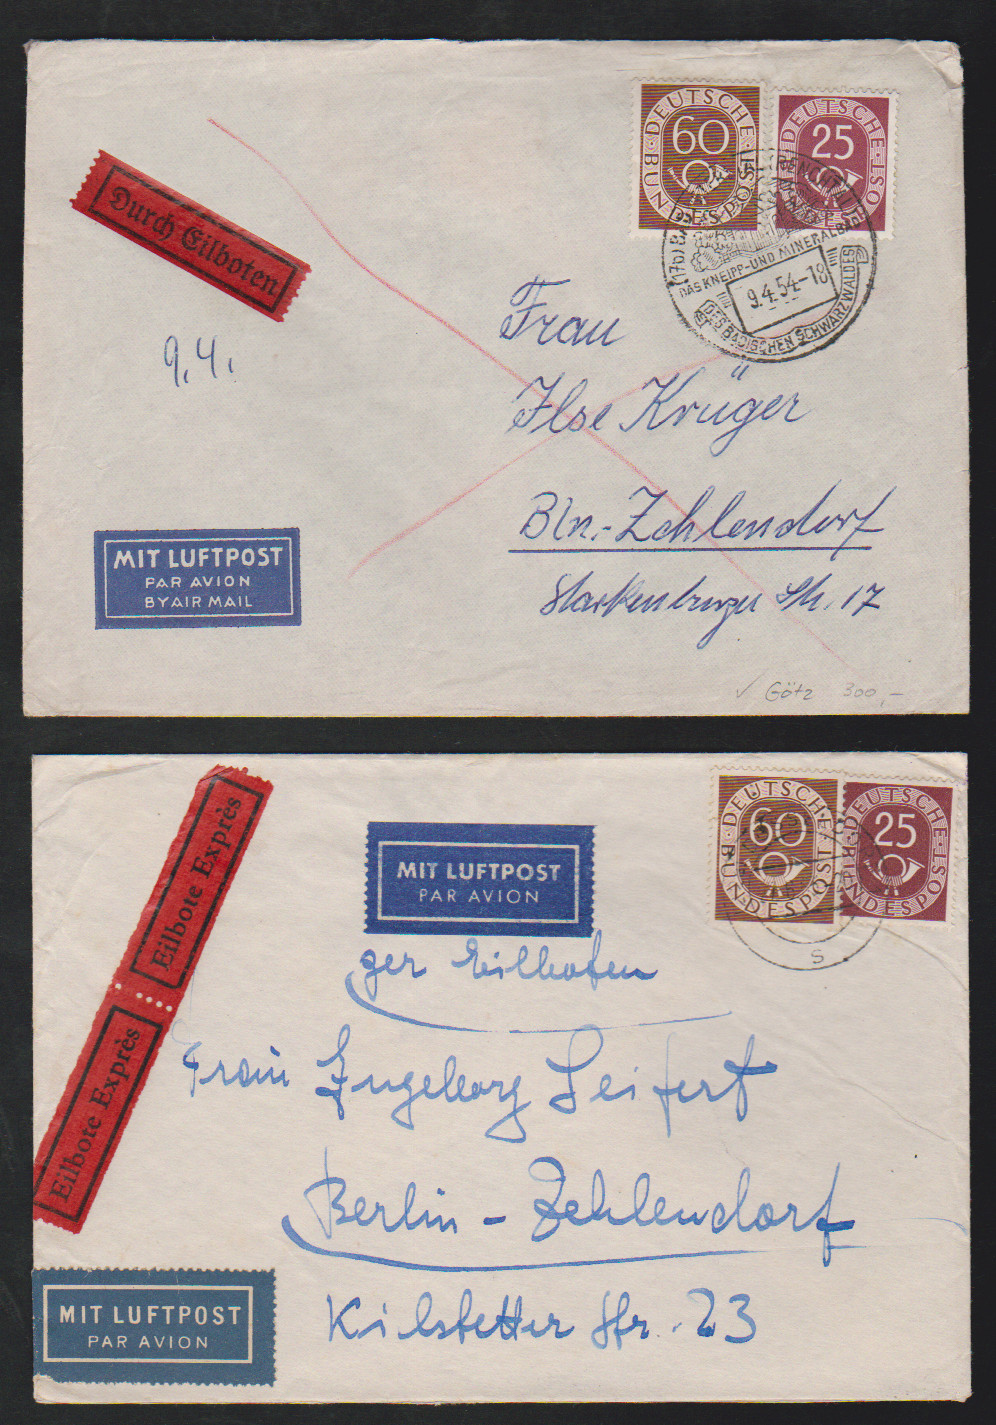 DEUTSCHE BUNDESPOST
60
DEUTSCHE BUNDESPOST
25
Durch Eilboten
(17b)
DAS KNEIPP-UND MINERALBAD
9.4.54-18
DES BADISCHEN SCHWARZWALDES
9.4.
Frau
Ilse Krüger
Bln.-Zehlendorf
Starkenburger Str. 17
MIT LUFTPOST
PAR AVION
BY AIR MAIL
✓ Götz 300,-
DEUTSCHE BUNDESPOST
60
DEUTSCHE BUNDESPOST
25
s
Eilbote Exprès
Eilbote Exprès
MIT LUFTPOST
PAR AVION
per Eilboten
Frau Ingeborg Seifert
Berlin - Zehlendorf
Kilstetter Str. 23
MIT LUFTPOST
PAR AVION